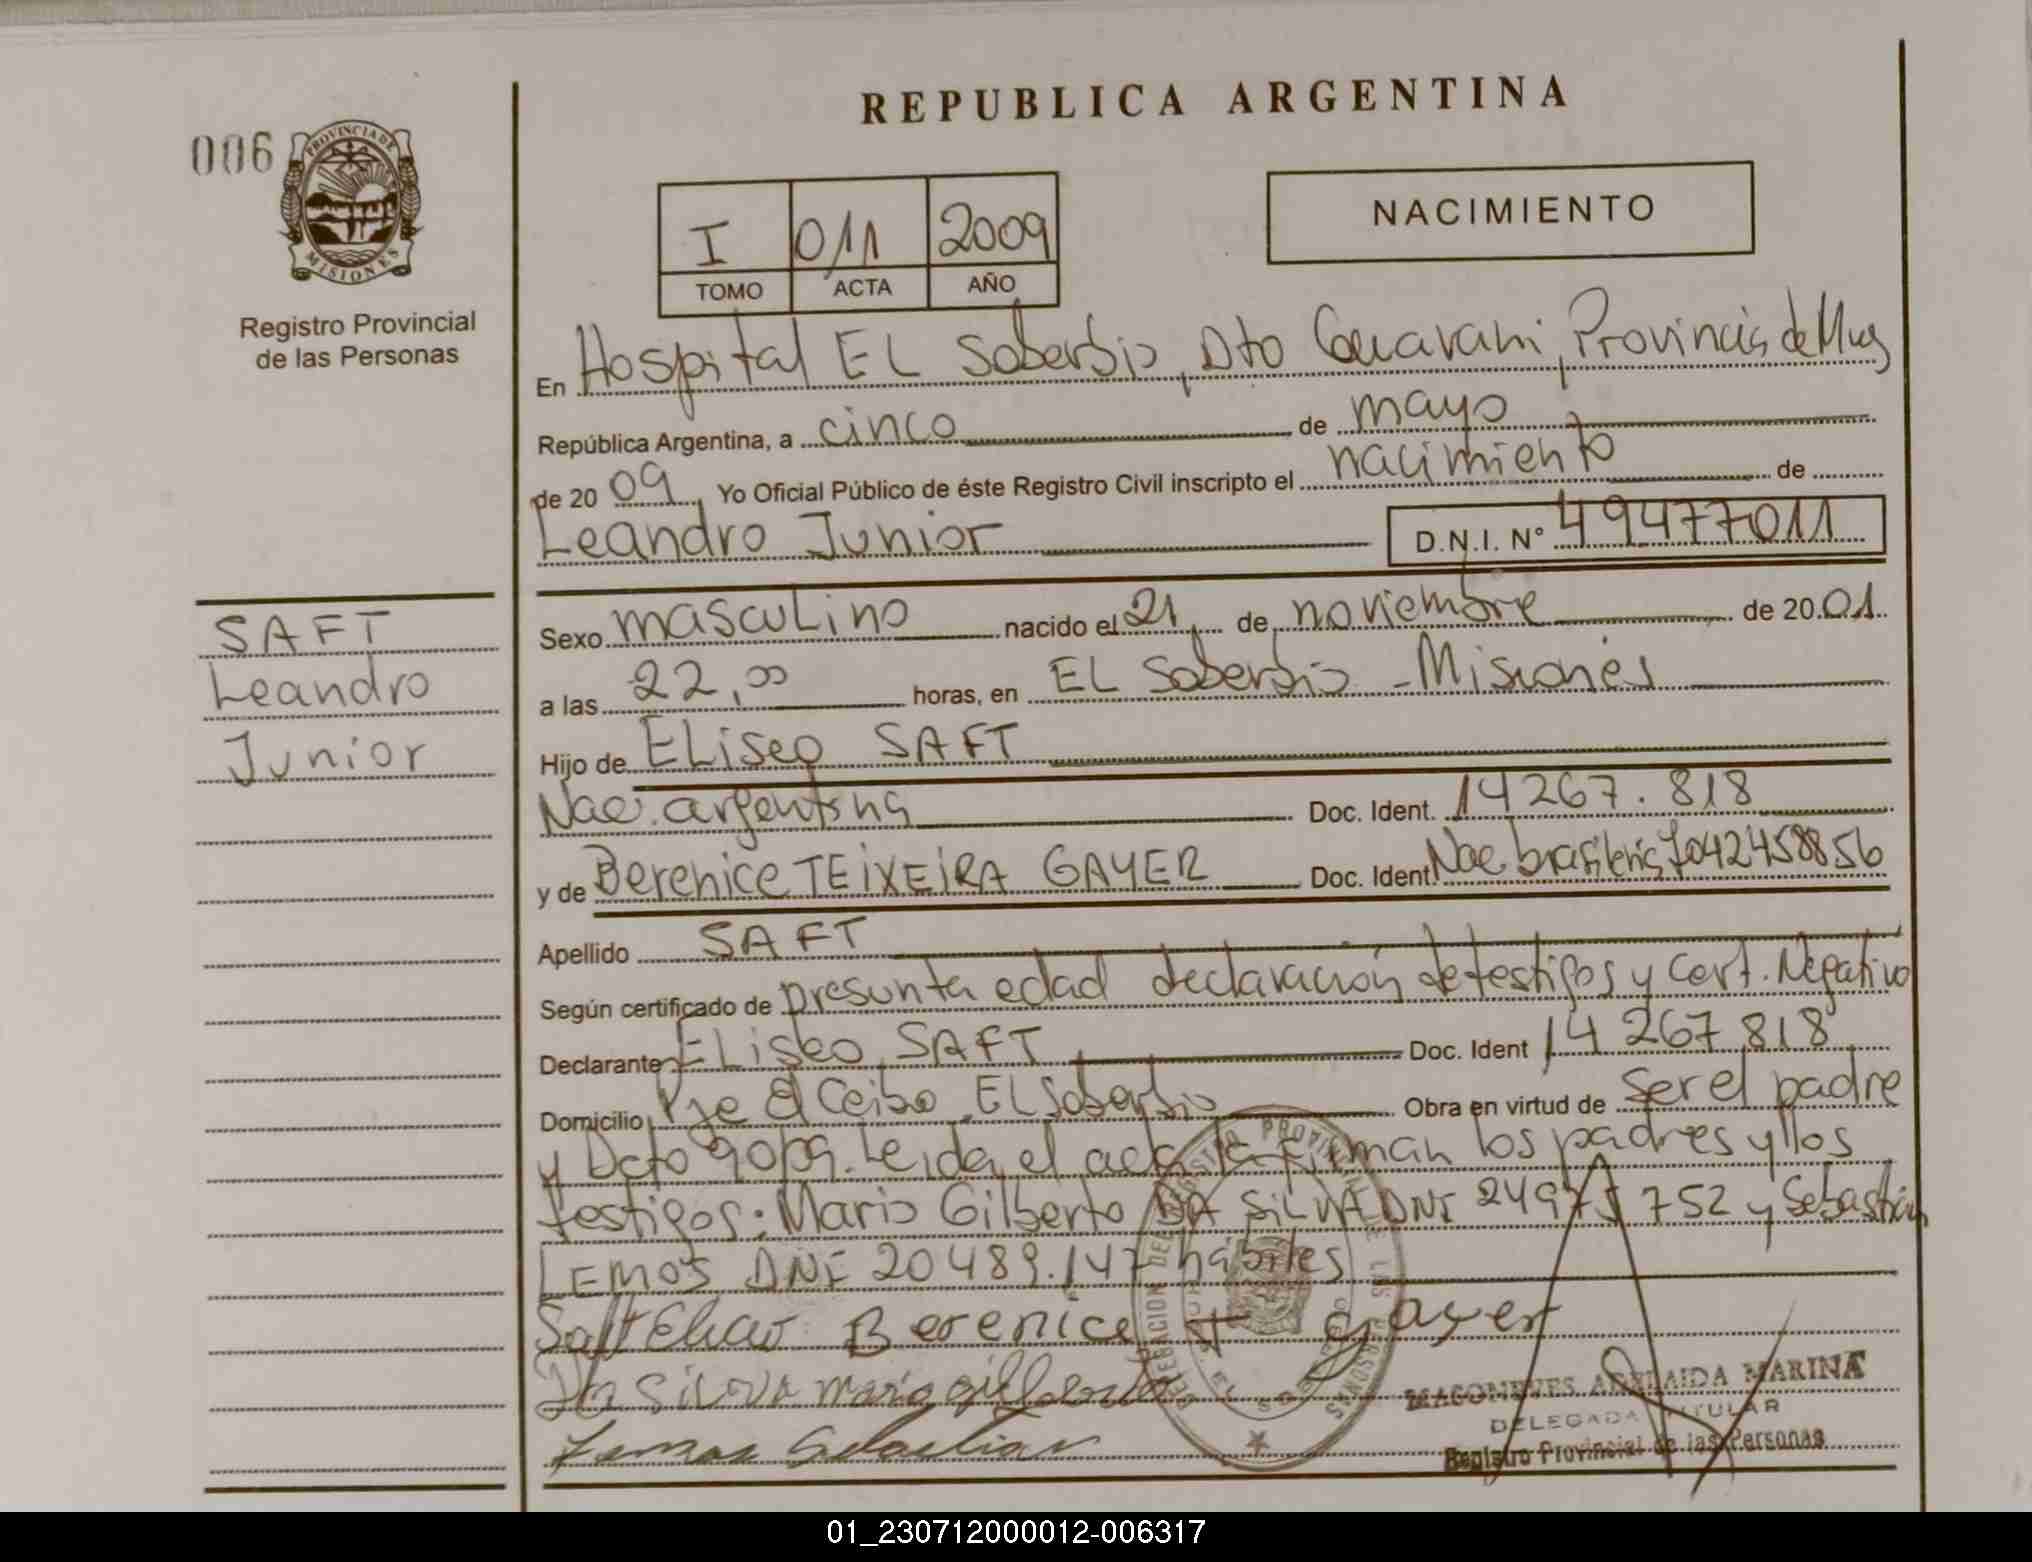 REPUBLICA ARGENTINA
006
PROVINCIA DE
MISIONES
Registro Provincial
de las Personas
I 011 2009
TOMO ACTA AÑO
NACIMIENTO
En Hospital EL Soberbio, Dto Guarani, Provincia de Mnes
República Argentina, a cinco de mayo
de 2009 Yo Oficial Público de éste Registro Civil inscripto el nacimiento de
Leandro Junior D.N.I. Nº 49477011
SAFT
Leandro
Junior
Sexo masculino nacido el 21 de noviembre de 2001
a las 22,00 horas, en EL Soberbio - Misiones
Hijo de ELiseo SAFT
Nac. argentina Doc. Ident. 14267.818
y de Berenice TEIXEIRA GAYER Doc. Ident. Nac brasileña 7042458856
Apellido SAFT
Según certificado de presunta edad declaración de testigos y Cert. Negativo
Declarante ELiseo SAFT Doc. Ident 14 267 818
Domicilio Pje El Ceibo EL Soberbio Obra en virtud de ser el padre
y Dcto 90/09. Leida el acta la firman los padres y los
testigos: Mario Gilberto DA SILVA DNI 24975752 y Sebastián
LEMOS DNI 20489.147 hábiles
Saft Eliseo Berenice T gayer
Da Silva mario gilberto
Lemos Sebastian
ADELAIDA MARINA
DELEGADA TITULAR
Registro Provincial de las Personas
01_230712000012-006317